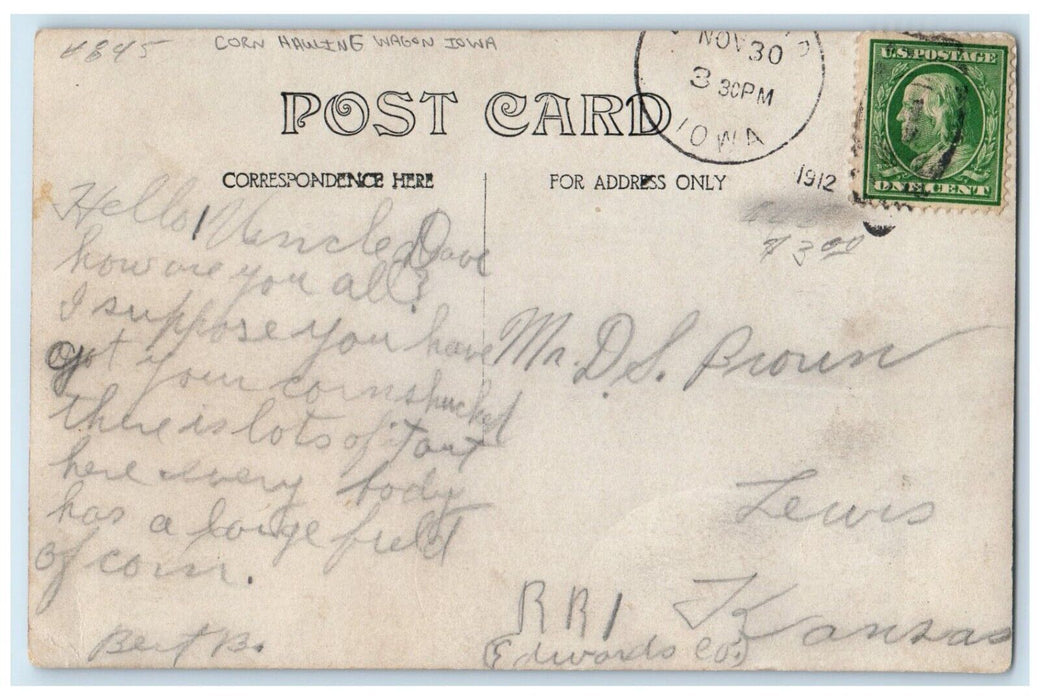 4845
CORN HAULING WAGON IOWA
NOV 30
3 30PM
IOWA
1912
U.S. POSTAGE
ONE CENT
POST CARD
CORRESPONDENCE HERE
FOR ADDRESS ONLY
$3.00
Hello! Uncle Dave
how are you all?
I suppose you have
got your corn shucked
there is lots of out
here every body
has a large field
of corn.
Bert B.
Mr. D. S. Brown
Lewis
RR1 Kansas
(Edwards Co.)